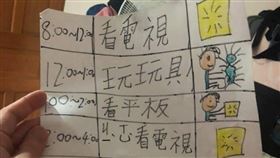 8:00~12:00 看電視
12:00~1:00 玩玩具
1:00~2:00 看平板
2:00~4:00 看電視